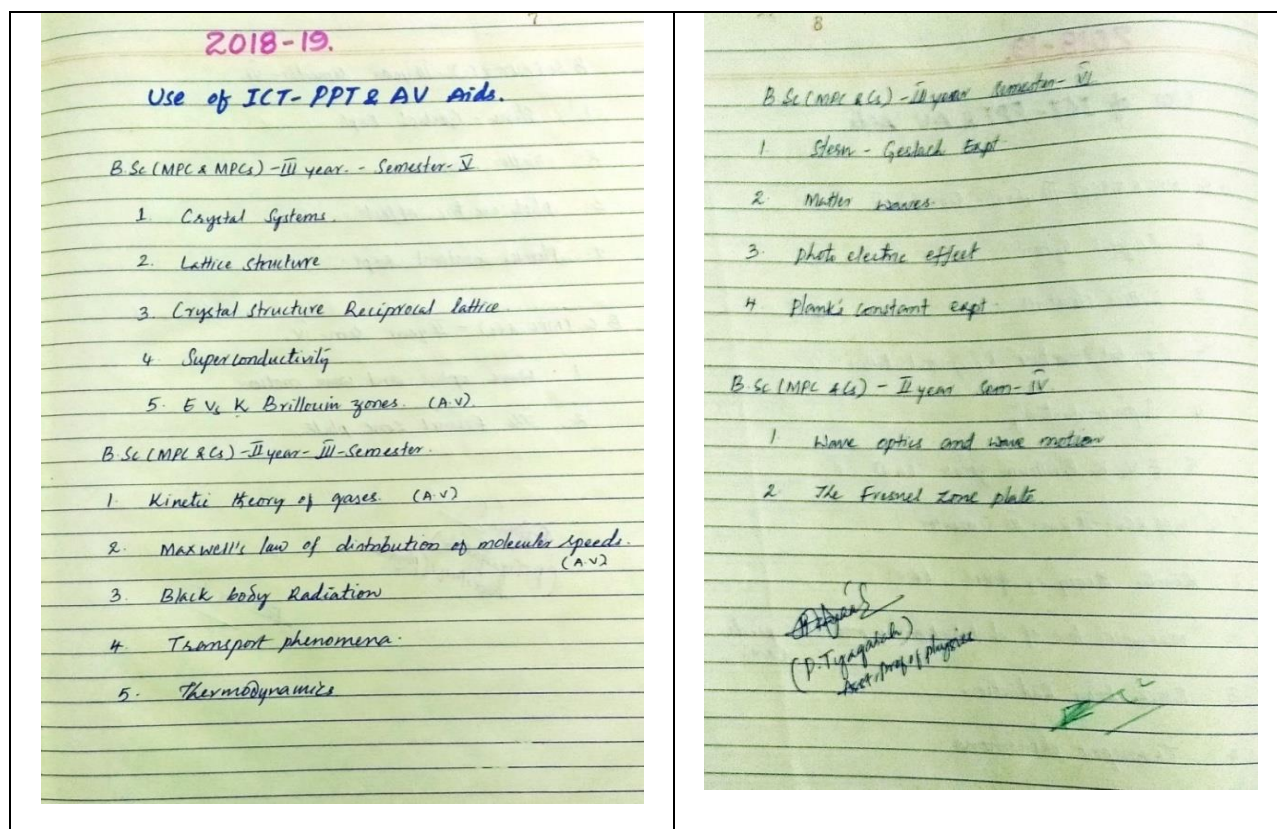 7
2018-19.
Use of ICT- PPT & AV Aids.
B.Sc (MPC & MPCs) -III year. - Semester- V
1. Crystal Systems.
2. Lattice structure
3. Crystal structure Reciprocal lattice.
4 Superconductivity
5. E Vs K Brillouin zones. (A.V)
B.Sc (MPC & Cs) -II year- III-Semester.
1. Kinetic theory of gases. (A.V)
2. Maxwell's law of distribution of molecular speeds.
(A.V)
3. Black body Radiation
4. Transport phenomena.
5. Thermodynamics
8
B.Sc (MPC & Cs) -III year Semester- VI
1 Stern - Gerlach Expt
2. Matter waves.
3. photo electric effect
4. Plank's constant expt.
B.Sc (MPC & Cs) - II year Sem- IV
1 Wave optics and wave motion
2 The Fresnel zone plate
(D. Tyagaiah)
Asst. Prof of physics